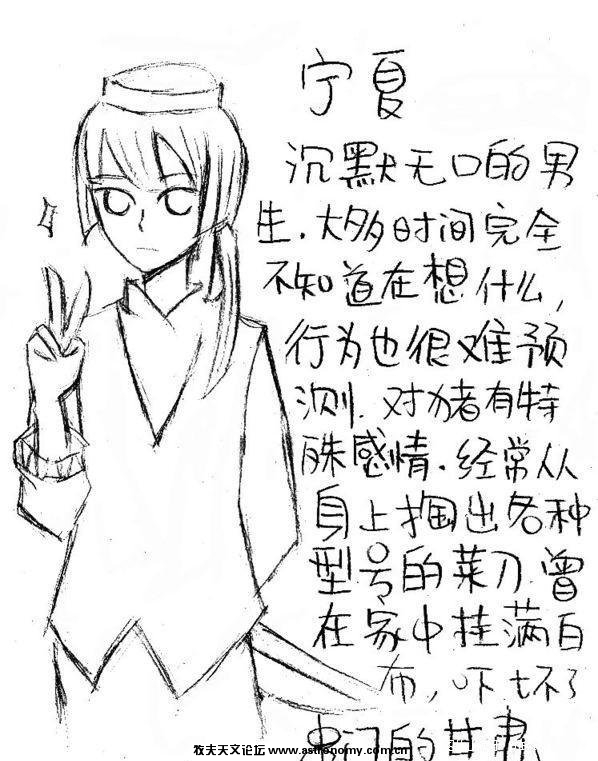 宁夏
沉默无口的男
生.大多时间完全
不知道在想什么,
行为也很难预
测.对猪有特
殊感情.经常从
身上掏出各种
型号的菜刀.曾
在家中挂满白
布,吓坏了
串门的甘肃
牧夫天文论坛 www.astronomy.com.cn